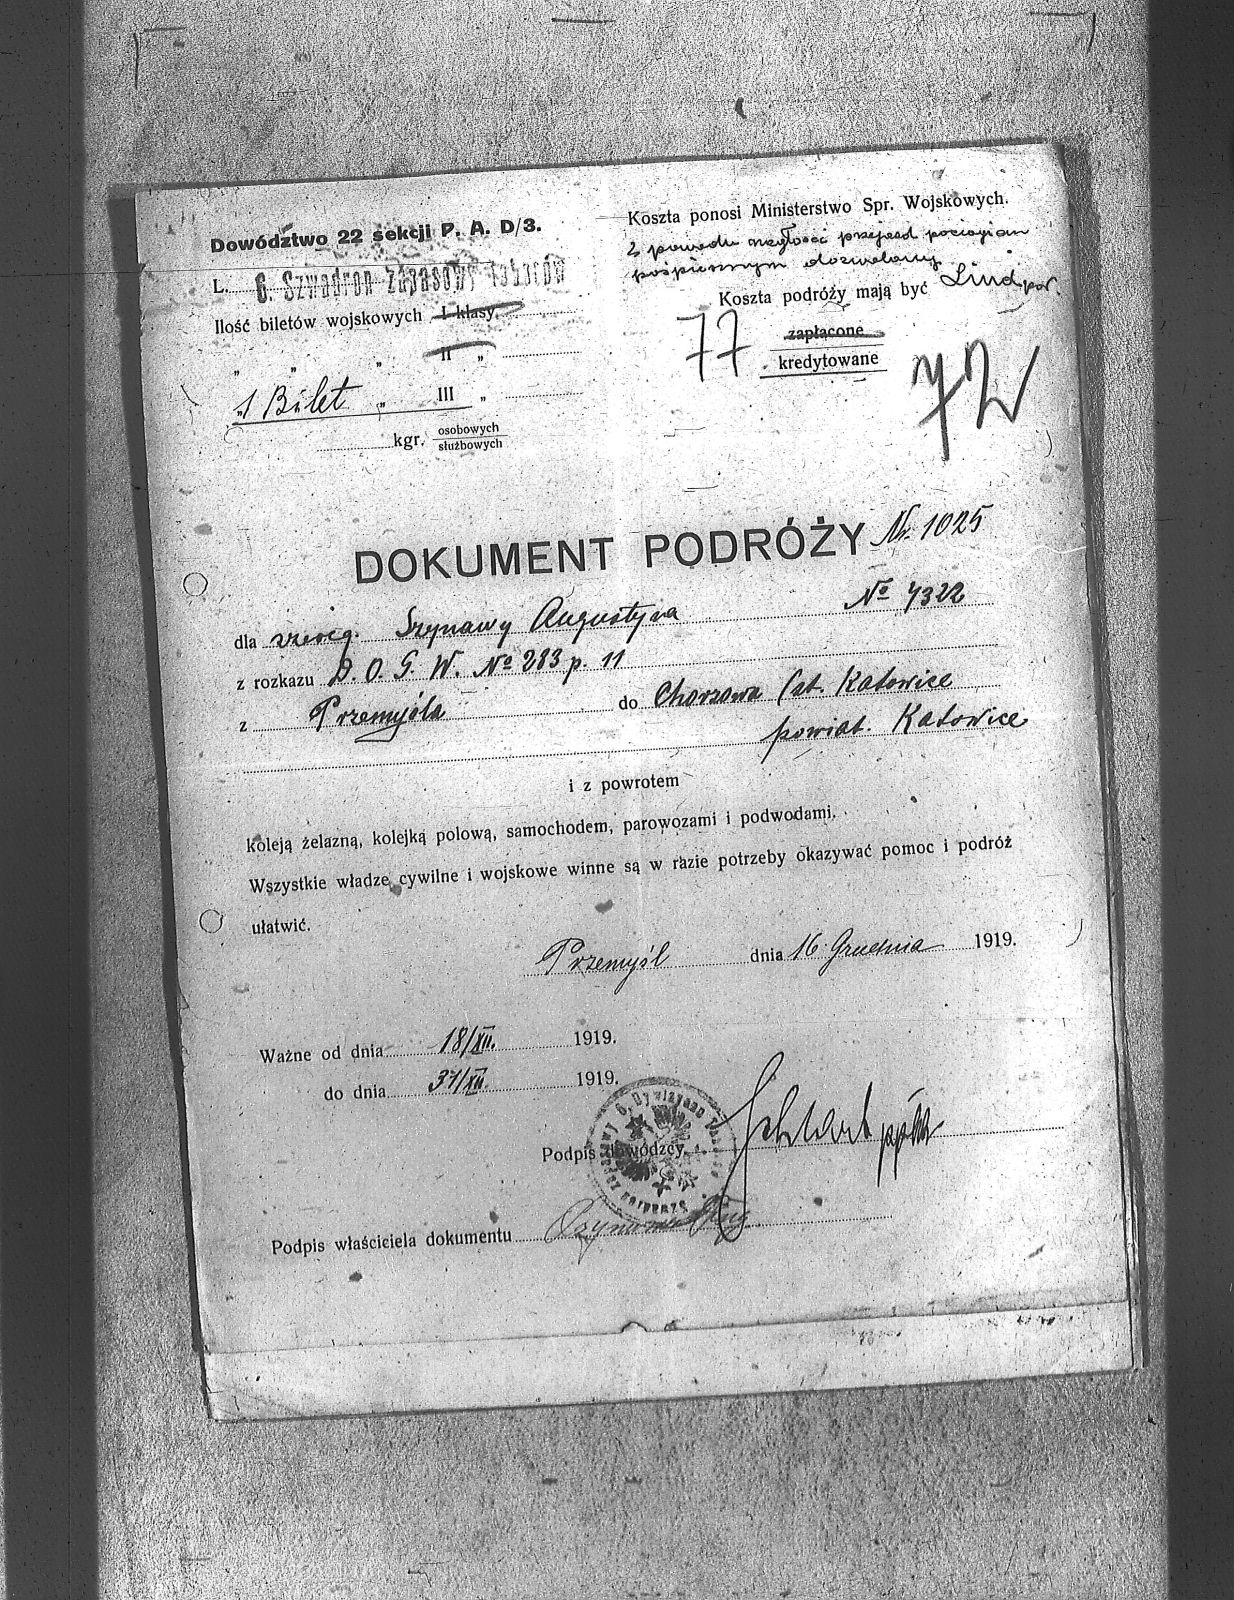 Dowództwo 22 sekcji P. A. D/3.
L. 6. Szwadron Zapasowy Taborów
Ilość biletów wojskowych I klasy
„ „ „ II „
„1 Bilet „ III „
kgr. osobowych
służbowych
Koszta ponosi Ministerstwo Spr. Wojskowych.
z powodu nagłości przejazd pociągiem
pośpiesznym dozwolony
Lind por.
Koszta podróży mają być
zapłacone
kredytowane
77
72
DOKUMENT PODRÓŻY Nr. 1025
dla Szynawy Augustyna No 4322
z rozkazu D. O. G. W. No 283 p. 11
z Przemyśla do Chorzowa (st. Katowice
powiat. Katowice
i z powrotem
koleją żelazną, kolejką polową, samochodem, parowozami i podwodami.
Wszystkie władze cywilne i wojskowe winne są w razie potrzeby okazywać pomoc i podróż
ułatwić.
Przemyśl dnia 16 Grudnia 1919.
Ważne od dnia 18/XII. 1919.
do dnia 31/XII 1919.
Podpis dowódzcy ppłk
Podpis właściciela dokumentu